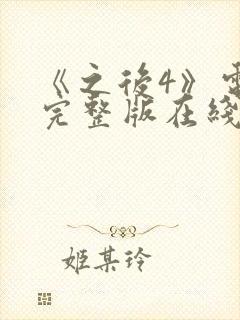 《之後4》電
完整版在綫
姬某玲